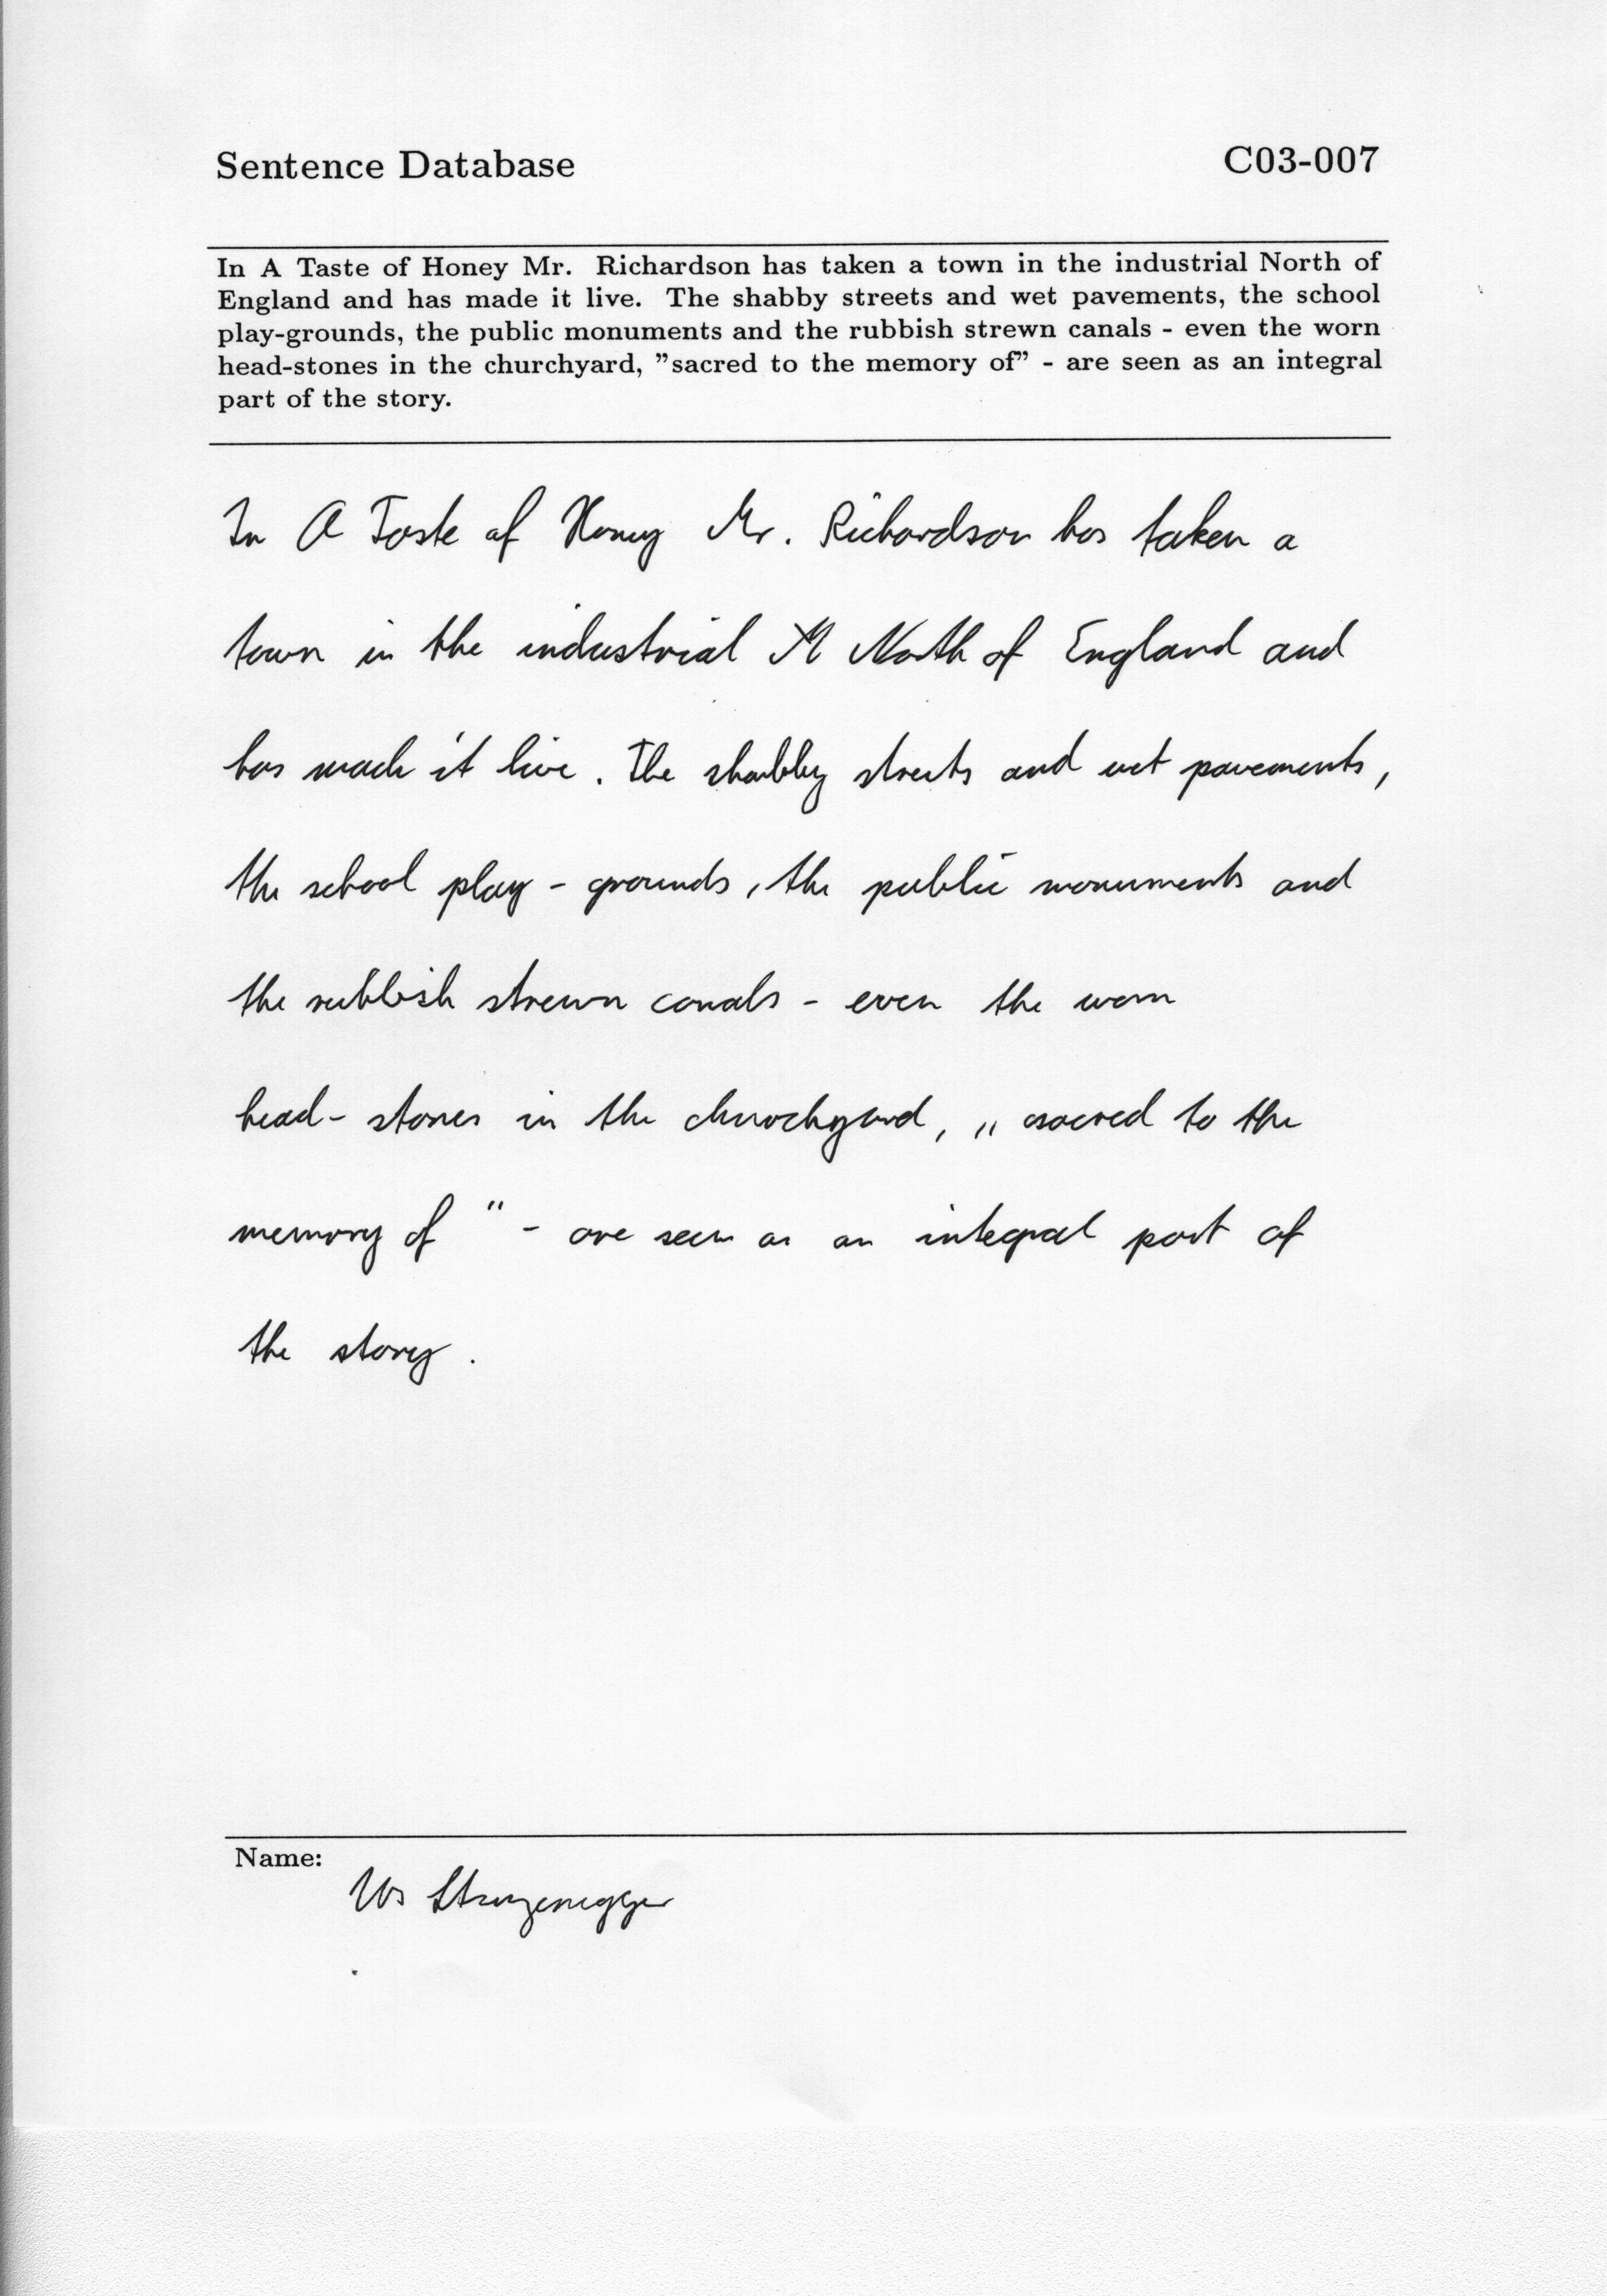 Sentence Database C03-007
In A Taste of Honey Mr. Richardson has taken a town in the industrial North of
England and has made it live. The shabby streets and wet pavements, the school
play-grounds, the public monuments and the rubbish strewn canals - even the worn
head-stones in the churchyard, "sacred to the memory of" - are seen as an integral
part of the story.
In A Taste of Honey Mr. Richardson has taken a
town in the industrial N North of England and
has made it live. The shabby streets and wet pavements,
the school play - grounds, the public monuments and
the rubbish strewn canals - even the worn
head - stones in the churchyard, „ sacred to the
memory of " - are seen as an integral part of
the story.
Name:
Urs Sturzenegger